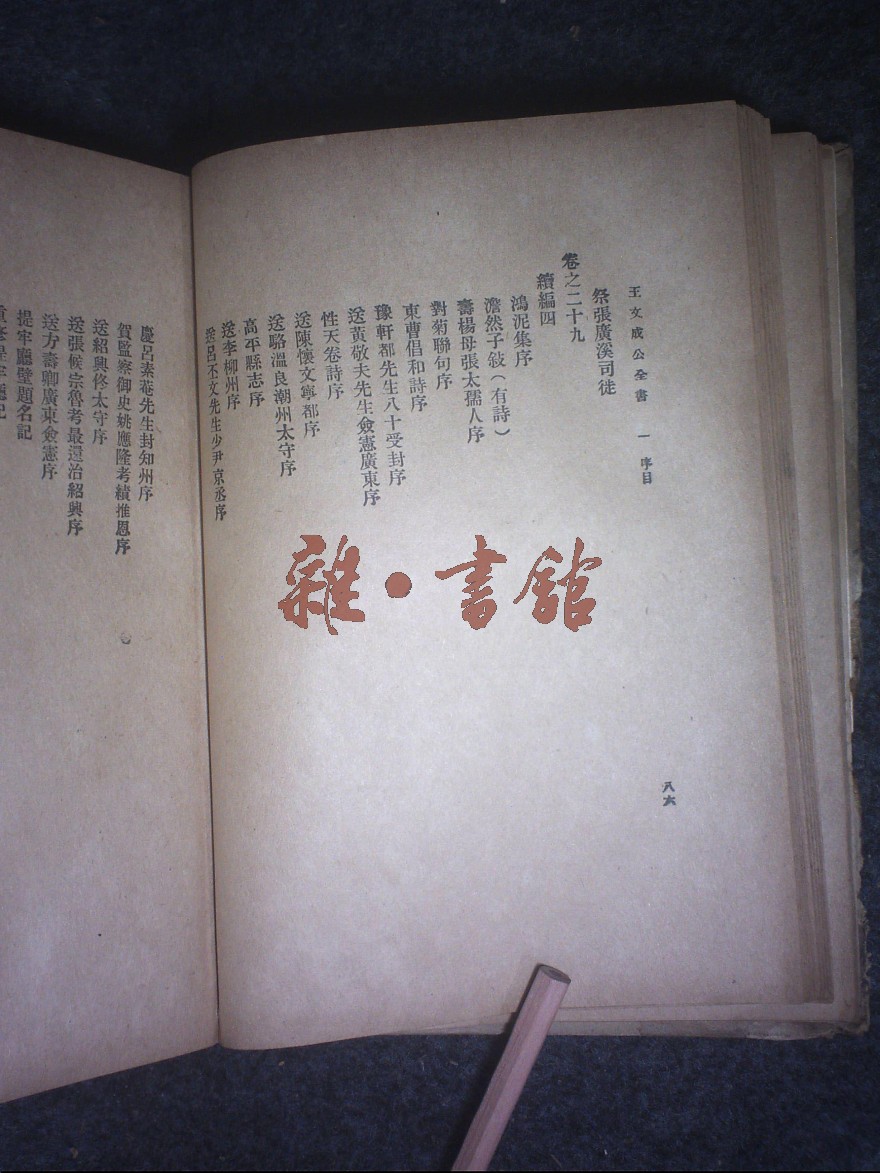 王文成公全書 一 序目
祭張廣溪司徒
卷之二十九
續編四
鴻泥集序
澹然子敍(有詩)
壽楊母張太孺人序
對菊聯句序
東曹倡和詩序
豫軒都先生八十受封序
送黃敬夫先生僉憲廣東序
性天卷詩序
送陳懷文寧都序
送駱溫良潮州太守序
高平縣志序
送李柳州序
送呂丕文先生少尹京丞序
八六
慶呂素菴先生封知州序
賀監察御史姚應隆考績推恩序
送紹興佟太守序
送張候宗魯考最還治紹興序
送方壽卿廣東僉憲序
提牢廳壁題名記
雜·書館